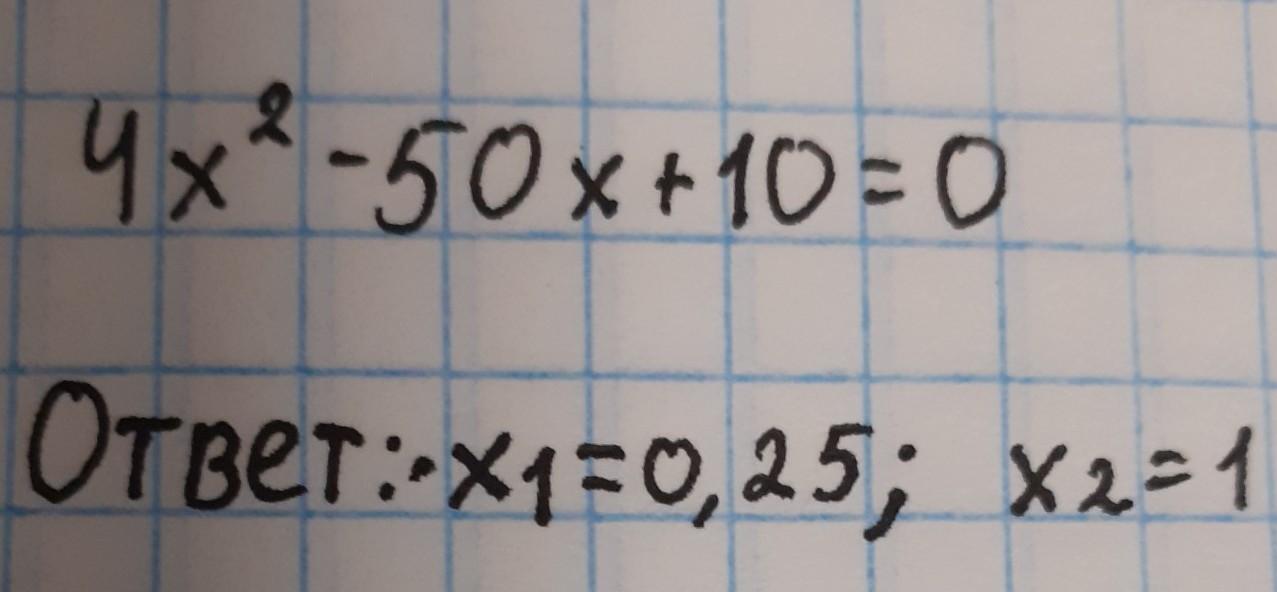 4x² -50x+10=0
Ответ: x1=0,25; x2=1